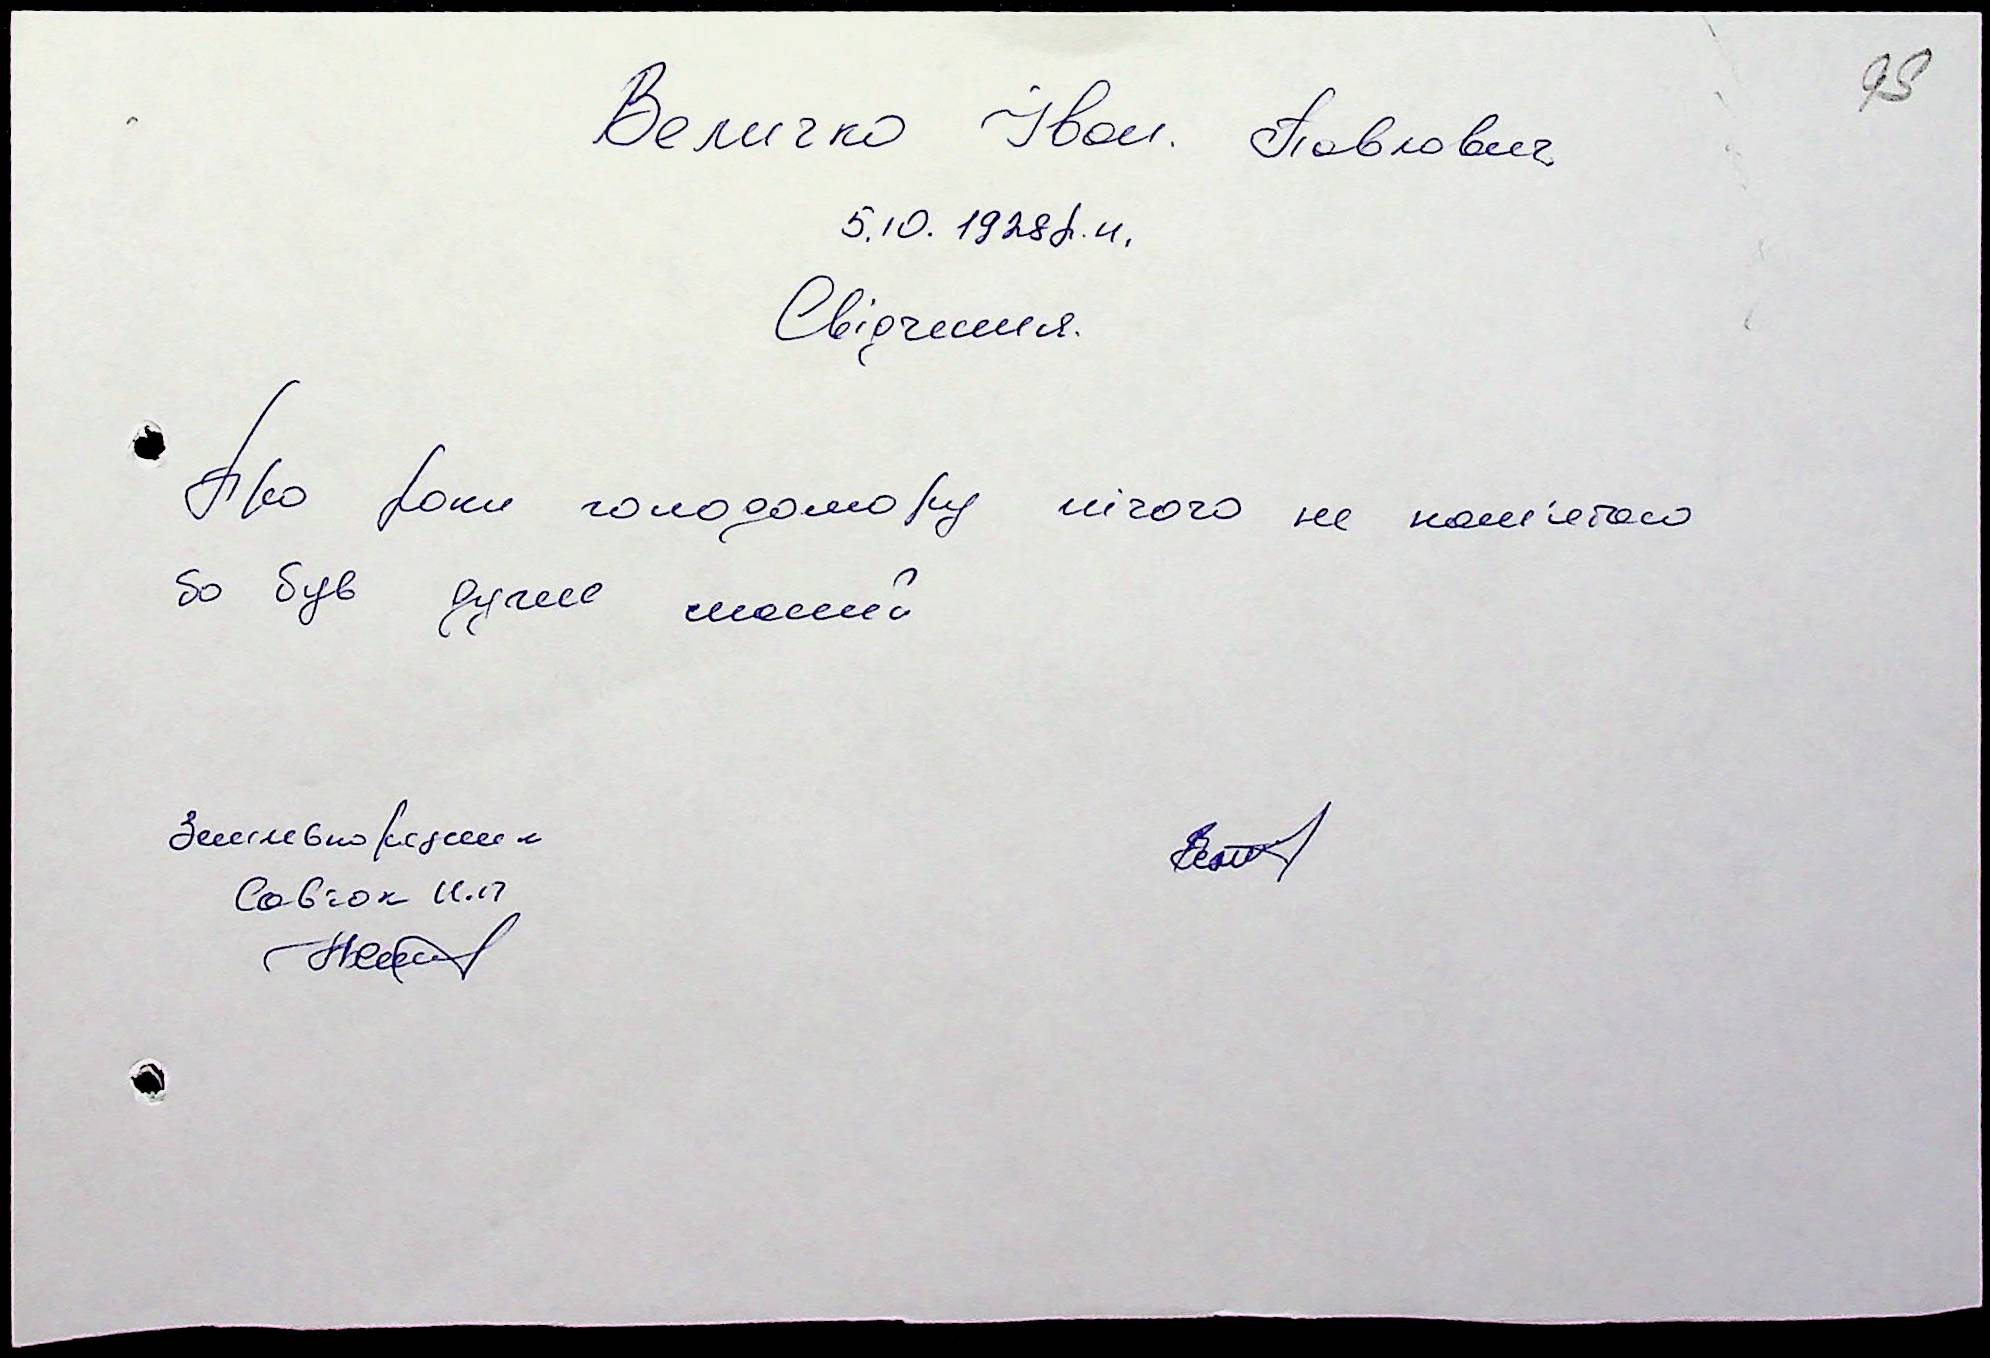 98
Величко Іван. Павлович
5.10. 1928р.н.
Свідчення.
Про роки голодомору нічого не пам'ятаю
бо був дуже малий
Землевпорядник
Савчок Н.П